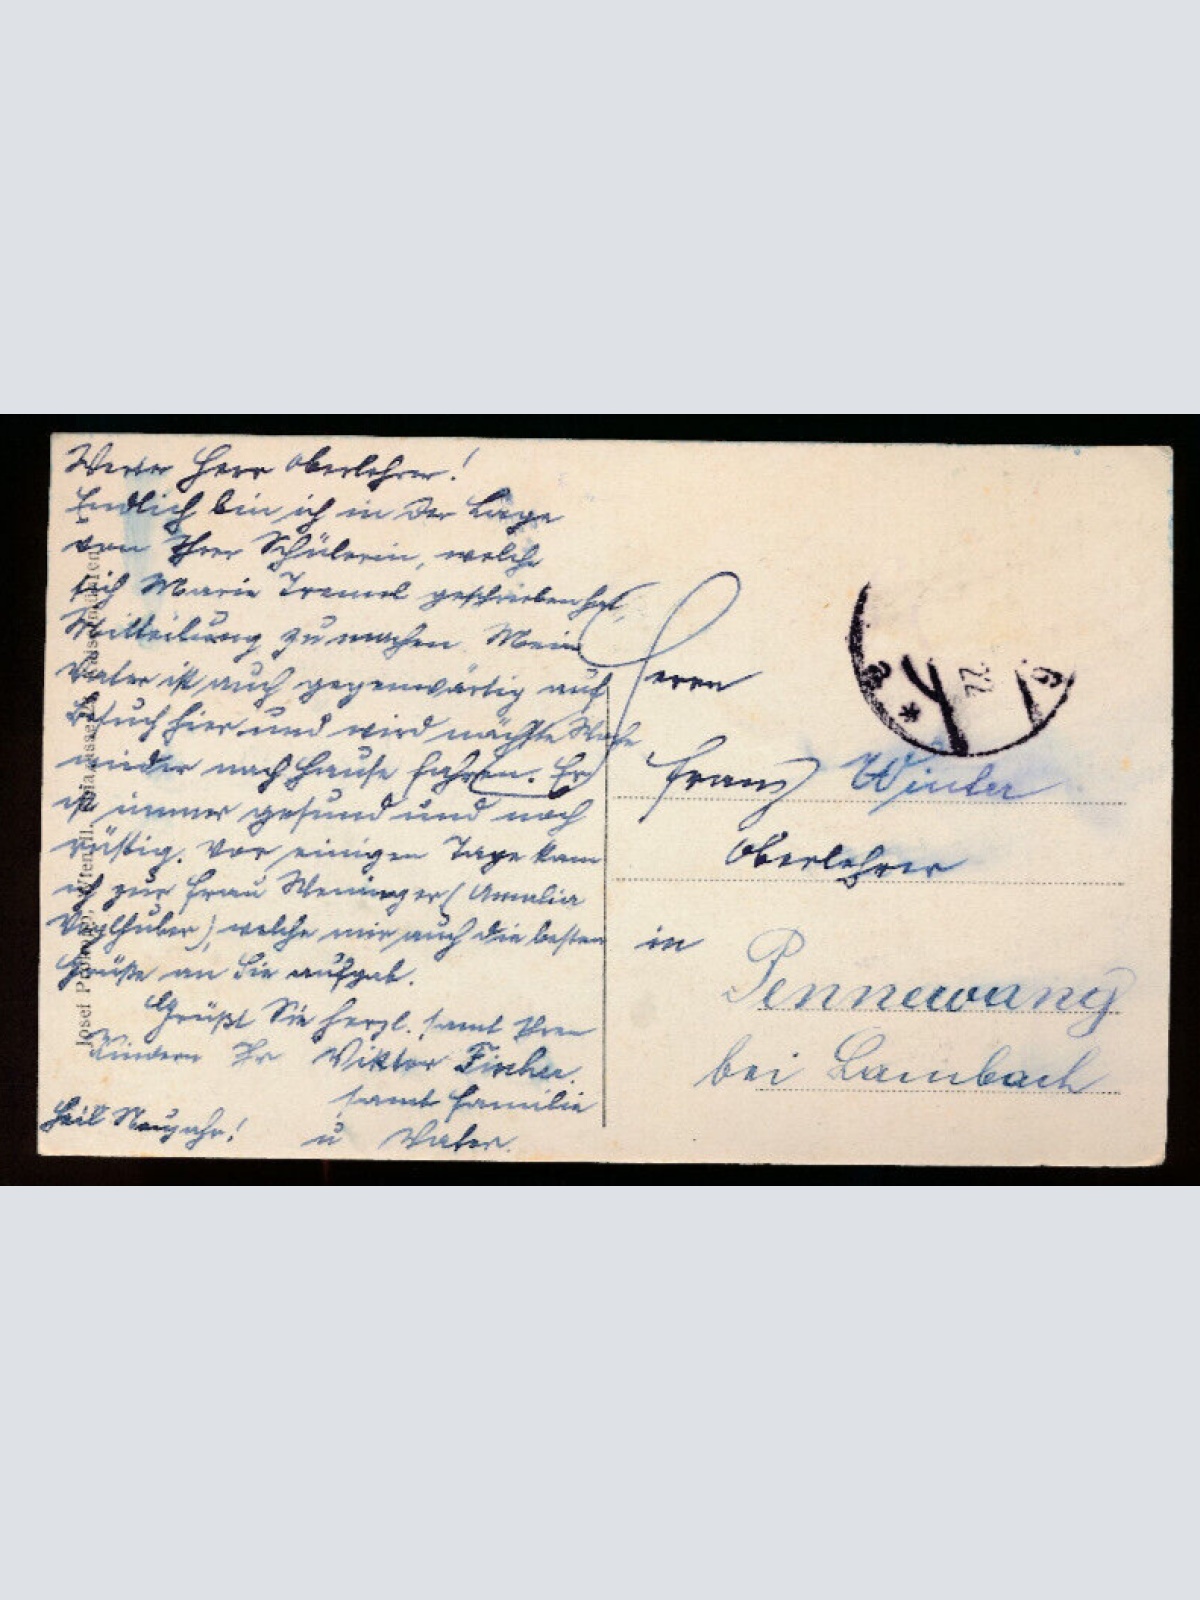 Werter Herr Oberlehrer!
Endlich bin ich in der Lage
von Ihrer Schülerin, welche
sich Marie Tremel geschrieben hat,
Mitteilung zu machen. Mein
Vater ist auch gegenwärtig auf
Besuch hier und wird nächste Woche
wieder nach Hause fahren. Er
ist immer gesund und noch
rüstig. Vor einigen Tage kam
ich zur Frau Weninger (Amalia
Voglhuber), welche mir auch die besten
Grüße an Sie aufgab.
Grüßt Sie herzl. samt Ihren
Kindern Ihr Viktor
samt Familie
u Vater.
Heil Neujahr!
Herrn
Franz Winter
Oberlehrer
in Pennewang
bei Lambach
22
Josef